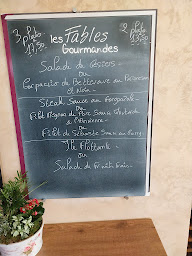 3 plats
17,50
les Fables
Gourmandes
2 plats
13,50
Salade de Gésiers
ou
Carpaccio de Betterave au Parmesan
et Noix
Steak Sauce au
ou
Filet Mignon de Porc Sauce Moutarde
à l'Ancienne
ou
Filet de Sébaste Sauce au Curry
Ile Flottante
ou
Salade de Fruits Frais